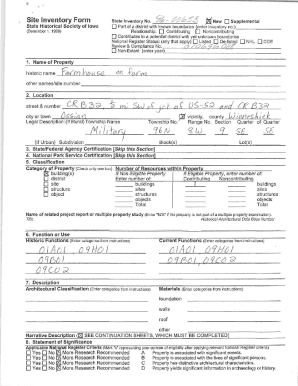 Site Inventory Form State Inventory No. 96-00655 New Supplemental
State Historical Society of Iowa Part of a district with known boundaries (enter inventory no.)
(December 1, 1999) Relationship: Contributing Noncontributing
Contributes to a potential district with yet unknown boundaries
National Register Status: (any that apply) Listed De-listed NHL DOE
Review & Compliance No.
Non-Extant (enter year)
1. Name of Property
historic name Farmhouse on farm
other names/site number
2. Location
street & number CR B32, 5 mi SW of jct of US-52 and CR B32
city or town Ossian vicinity, county Winneshiek
Legal Description: (If Rural) Township Name Township No. Range No. Section Quarter of Quarter
Military 96N 8W 9 SE SE
(If Urban) Subdivision Block(s) Lot(s)
3. State/Federal Agency Certification [Skip this Section]
4. National Park Service Certification [Skip this Section]
5. Classification
Category of Property (Check only one box) Number of Resources within Property
building(s) If Non-Eligible Property If Eligible Property, enter number of:
district Enter number of: Contributing Noncontributing
site buildings buildings
structure sites sites
object structures structures
objects objects
Total Total
Name of related project report or multiple property study (Enter "N/A" if the property is not part of a multiple property examination).
Title Historical Architectural Data Base Number
6. Function or Use
Historic Functions (Enter categories from instructions) Current Functions (Enter categories from instructions)
01A01, 09H01 01A01, 09H01
09B01 09B01, 09C02
09C02
7. Description
Architectural Classification (Enter categories from instructions) Materials (Enter categories from instructions)
foundation
walls
roof
other
Narrative Description (SEE CONTINUATION SHEETS, WHICH MUST BE COMPLETED)
8. Statement of Significance
Applicable National Register Criteria (Mark "x" representing your opinion of eligibility after applying relevant National Register criteria)
Yes No More Research Recommended A Property is associated with significant events.
Yes No More Research Recommended B Property is associated with the lives of significant persons.
Yes No More Research Recommended C Property has distinctive architectural characteristics.
Yes No More Research Recommended D Property yields significant information in archaeology or history.